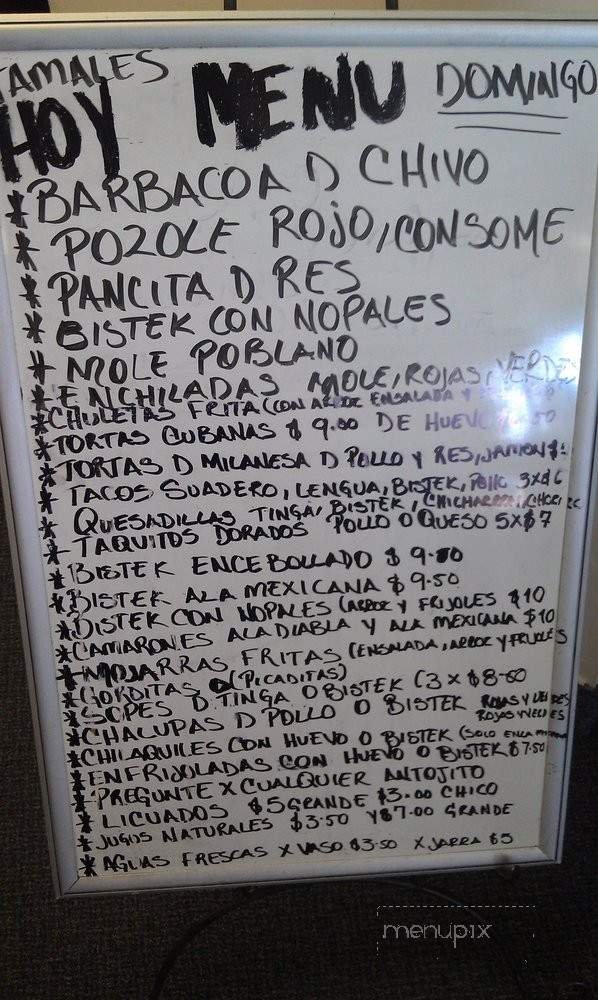 TAMALES
HOY MENU DOMINGO
* BARBACOA D CHIVO
* POZOLE ROJO, CONSOME
* PANCITA D RES
* BISTEK CON NOPALES
* MOLE POBLANO
* ENCHILADAS MOLE, ROJAS, VERDES
* CHULETAS FRITA (CON ARROZ ENSALADA Y
* TORTAS CUBANAS $ 9.00 DE HUEVO
* TORTAS D MILANESA D POLLO Y RES, JAMON $
* TACOS SUADERO, LENGUA, BISTEK, POLLO 3X$6
* QUESADILLAS TINGA, BISTEK, CHICHARRON, CHORIZO
* TAQUITOS DORADOS POLLO O QUESO 5X$7
* BISTEK ENCEBOLLADO $ 9.50
* BISTEK ALA MEXICANA $ 9.50
* BISTEK CON NOPALES (ARROZ Y FRIJOLES $10
* CAMARONES ALA DIABLA Y ALA MEXICANA $10
* MOJARRAS FRITAS (ENSALADA, ARROZ Y FRIJOLES
* GORDITAS O (PICADITAS)
* SOPES D TINGA O BISTEK (3 X $8.50
* CHALUPAS D POLLO O BISTEK ROJAS Y VERDES
* CHILAQUILES CON HUEVO O BISTEK ROJAS Y VERDES
* ENFRIJOLADAS CON HUEVO O BISTEK (SOLO EN LA $7.50
* PREGUNTE X CUALQUIER ANTOJITO
* LICUADOS $5 GRANDE $3.00 CHICO
* JUGOS NATURALES $3.50 Y $7.00 GRANDE
* AGUAS FRESCAS X VASO $3.50 X JARRA $5
menupix